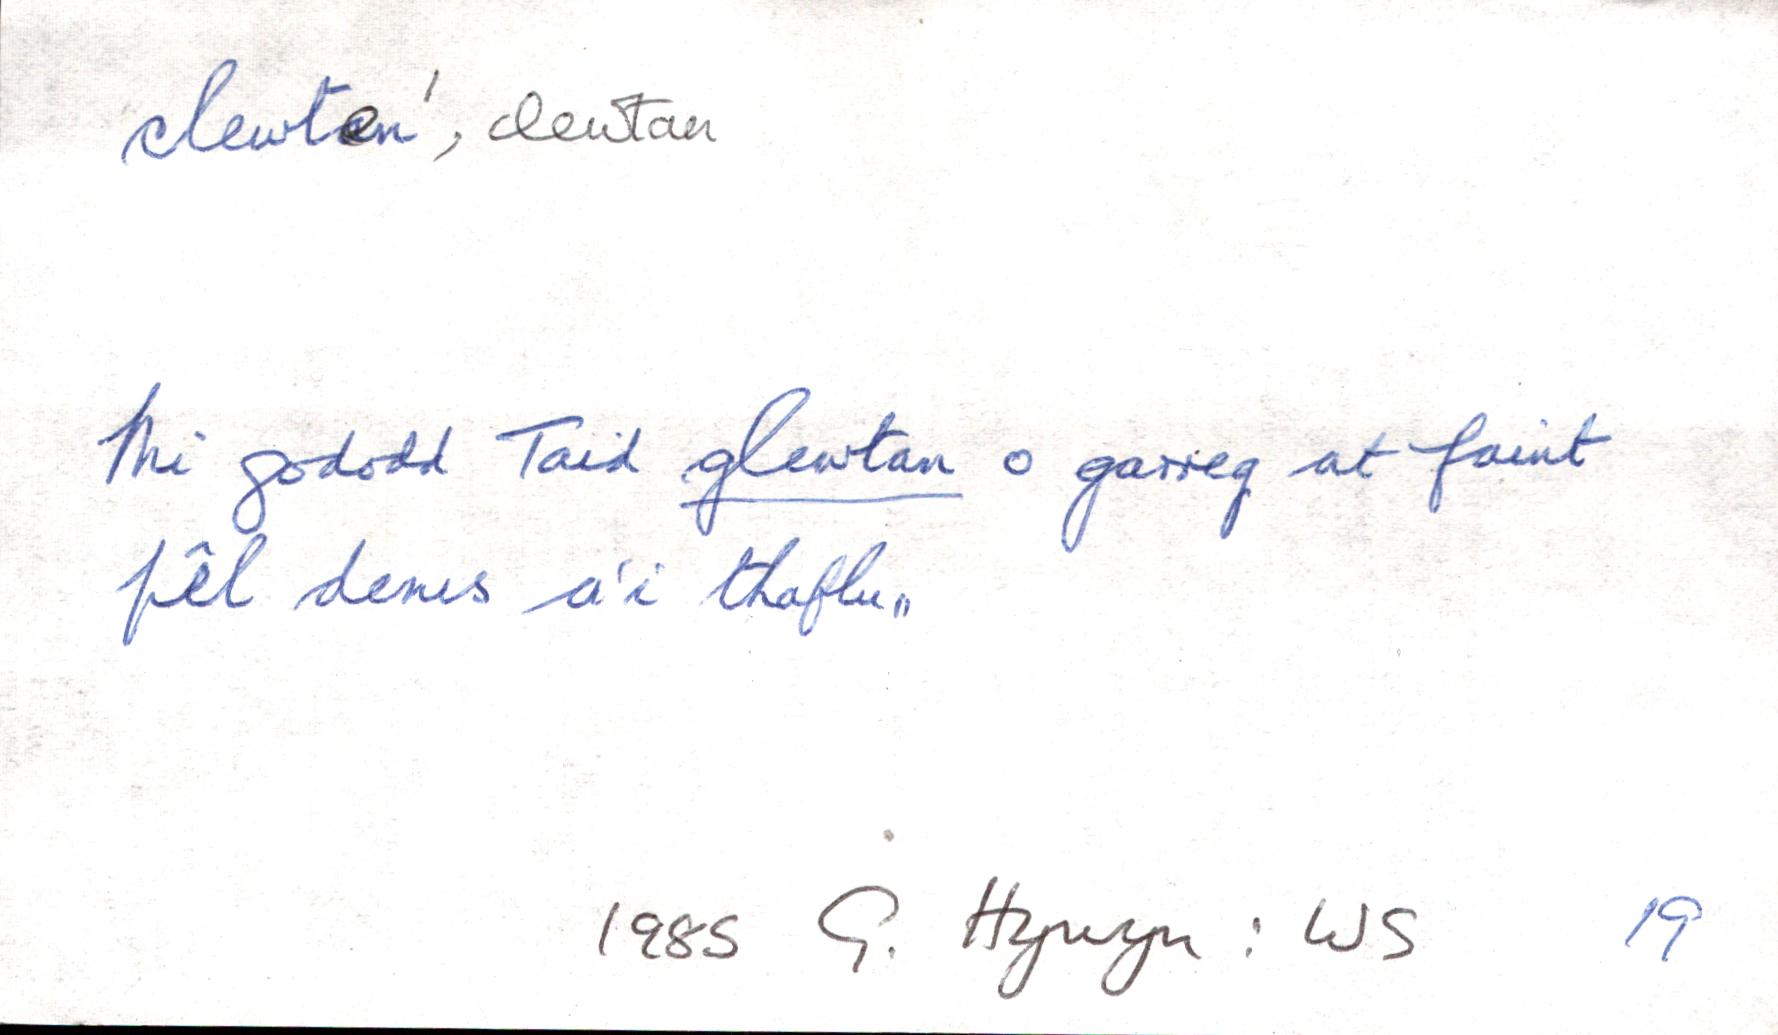 clewten', clewtan
Mi gododd Taid glewtan o garreg at faint
pêl denis a'i thaflu,,
1985 G. Hywyn : WS 19